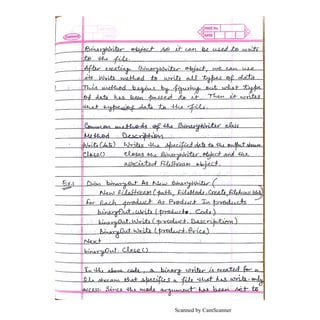 BinaryWriter object so it can be used to write
to the file.
After creating BinaryWriter object, we can use
its Write method to write all types of data
This method begins by figuring out what type
of data has been passed to it. Then it writes
that type of data to the file.
Common methods of the BinaryWriter class
Method Description
Write(data) Writes the specified data to the output stream
Close() closes the BinaryWriter object and the
associated FileStream object.
Dim binaryOut As New BinaryWriter(
New FileStream(path, FileMode.Create, FileAccess.Write))
For each product As Product In products
binaryOut.Write(product.Code)
binaryOut.Write(product.Description)
binaryOut.Write(product.Price)
Next
binaryOut.Close()
In the above code, a binary writer is created for a
file stream that specifies a file that has write-only
access. Since the mode argument has been set to
Scanned by CamScanner